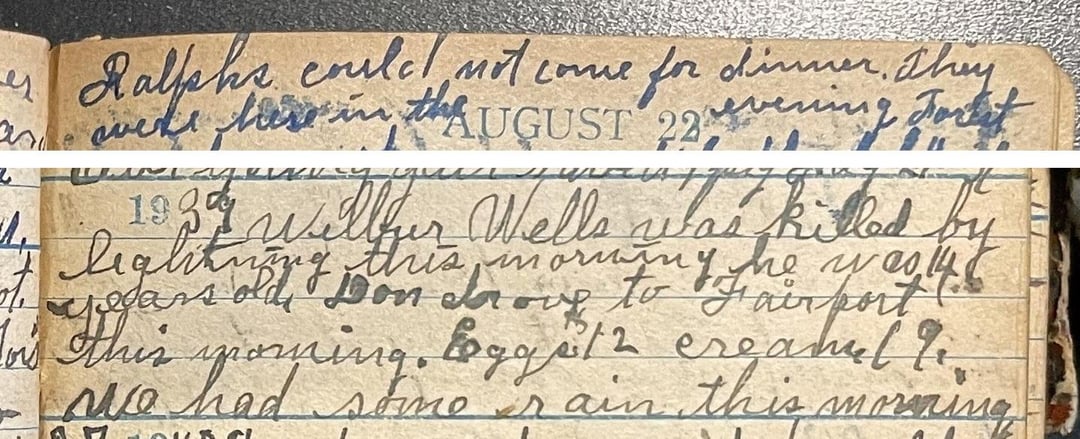 Ralphs could not come for dinner. They
were here in the evening Forest
AUGUST 22
1939 Wilbur Wells was killed by
lightning this morning he was 14
years old, Don drove to Fairport
this morning. Eggs 12 cream 19.
We had some rain this morning